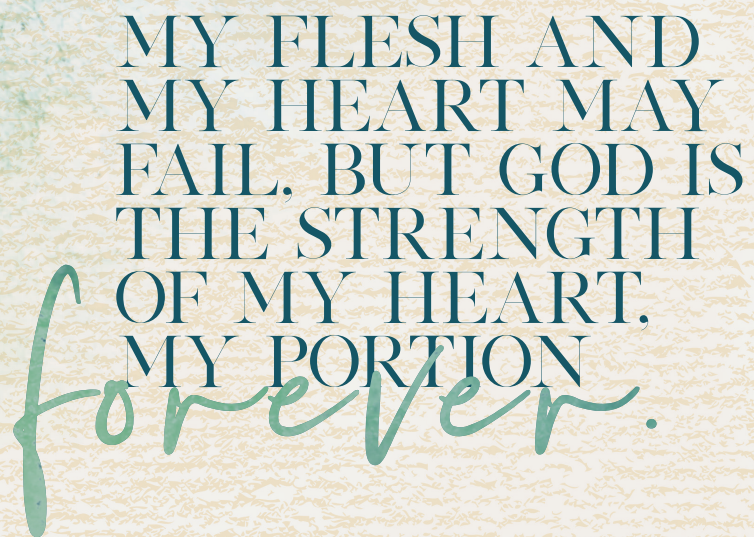 MY FLESH AND
MY HEART MAY
FAIL, BUT GOD IS
THE STRENGTH
OF MY HEART,
MY PORTION
forever.